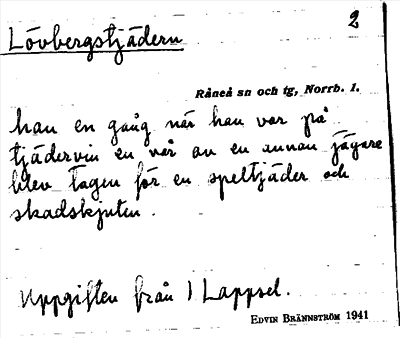 2
Lövbergstjädern
Råneå sn och tg, Norrb. l.
han en gång när han var på
tjädervin en vår av en annan jägare
blev tagen för en speltjäder och
skadskjuten.
Uppgiften från I Lappsel.
EDVIN BRÄNNSTRÖM 1941